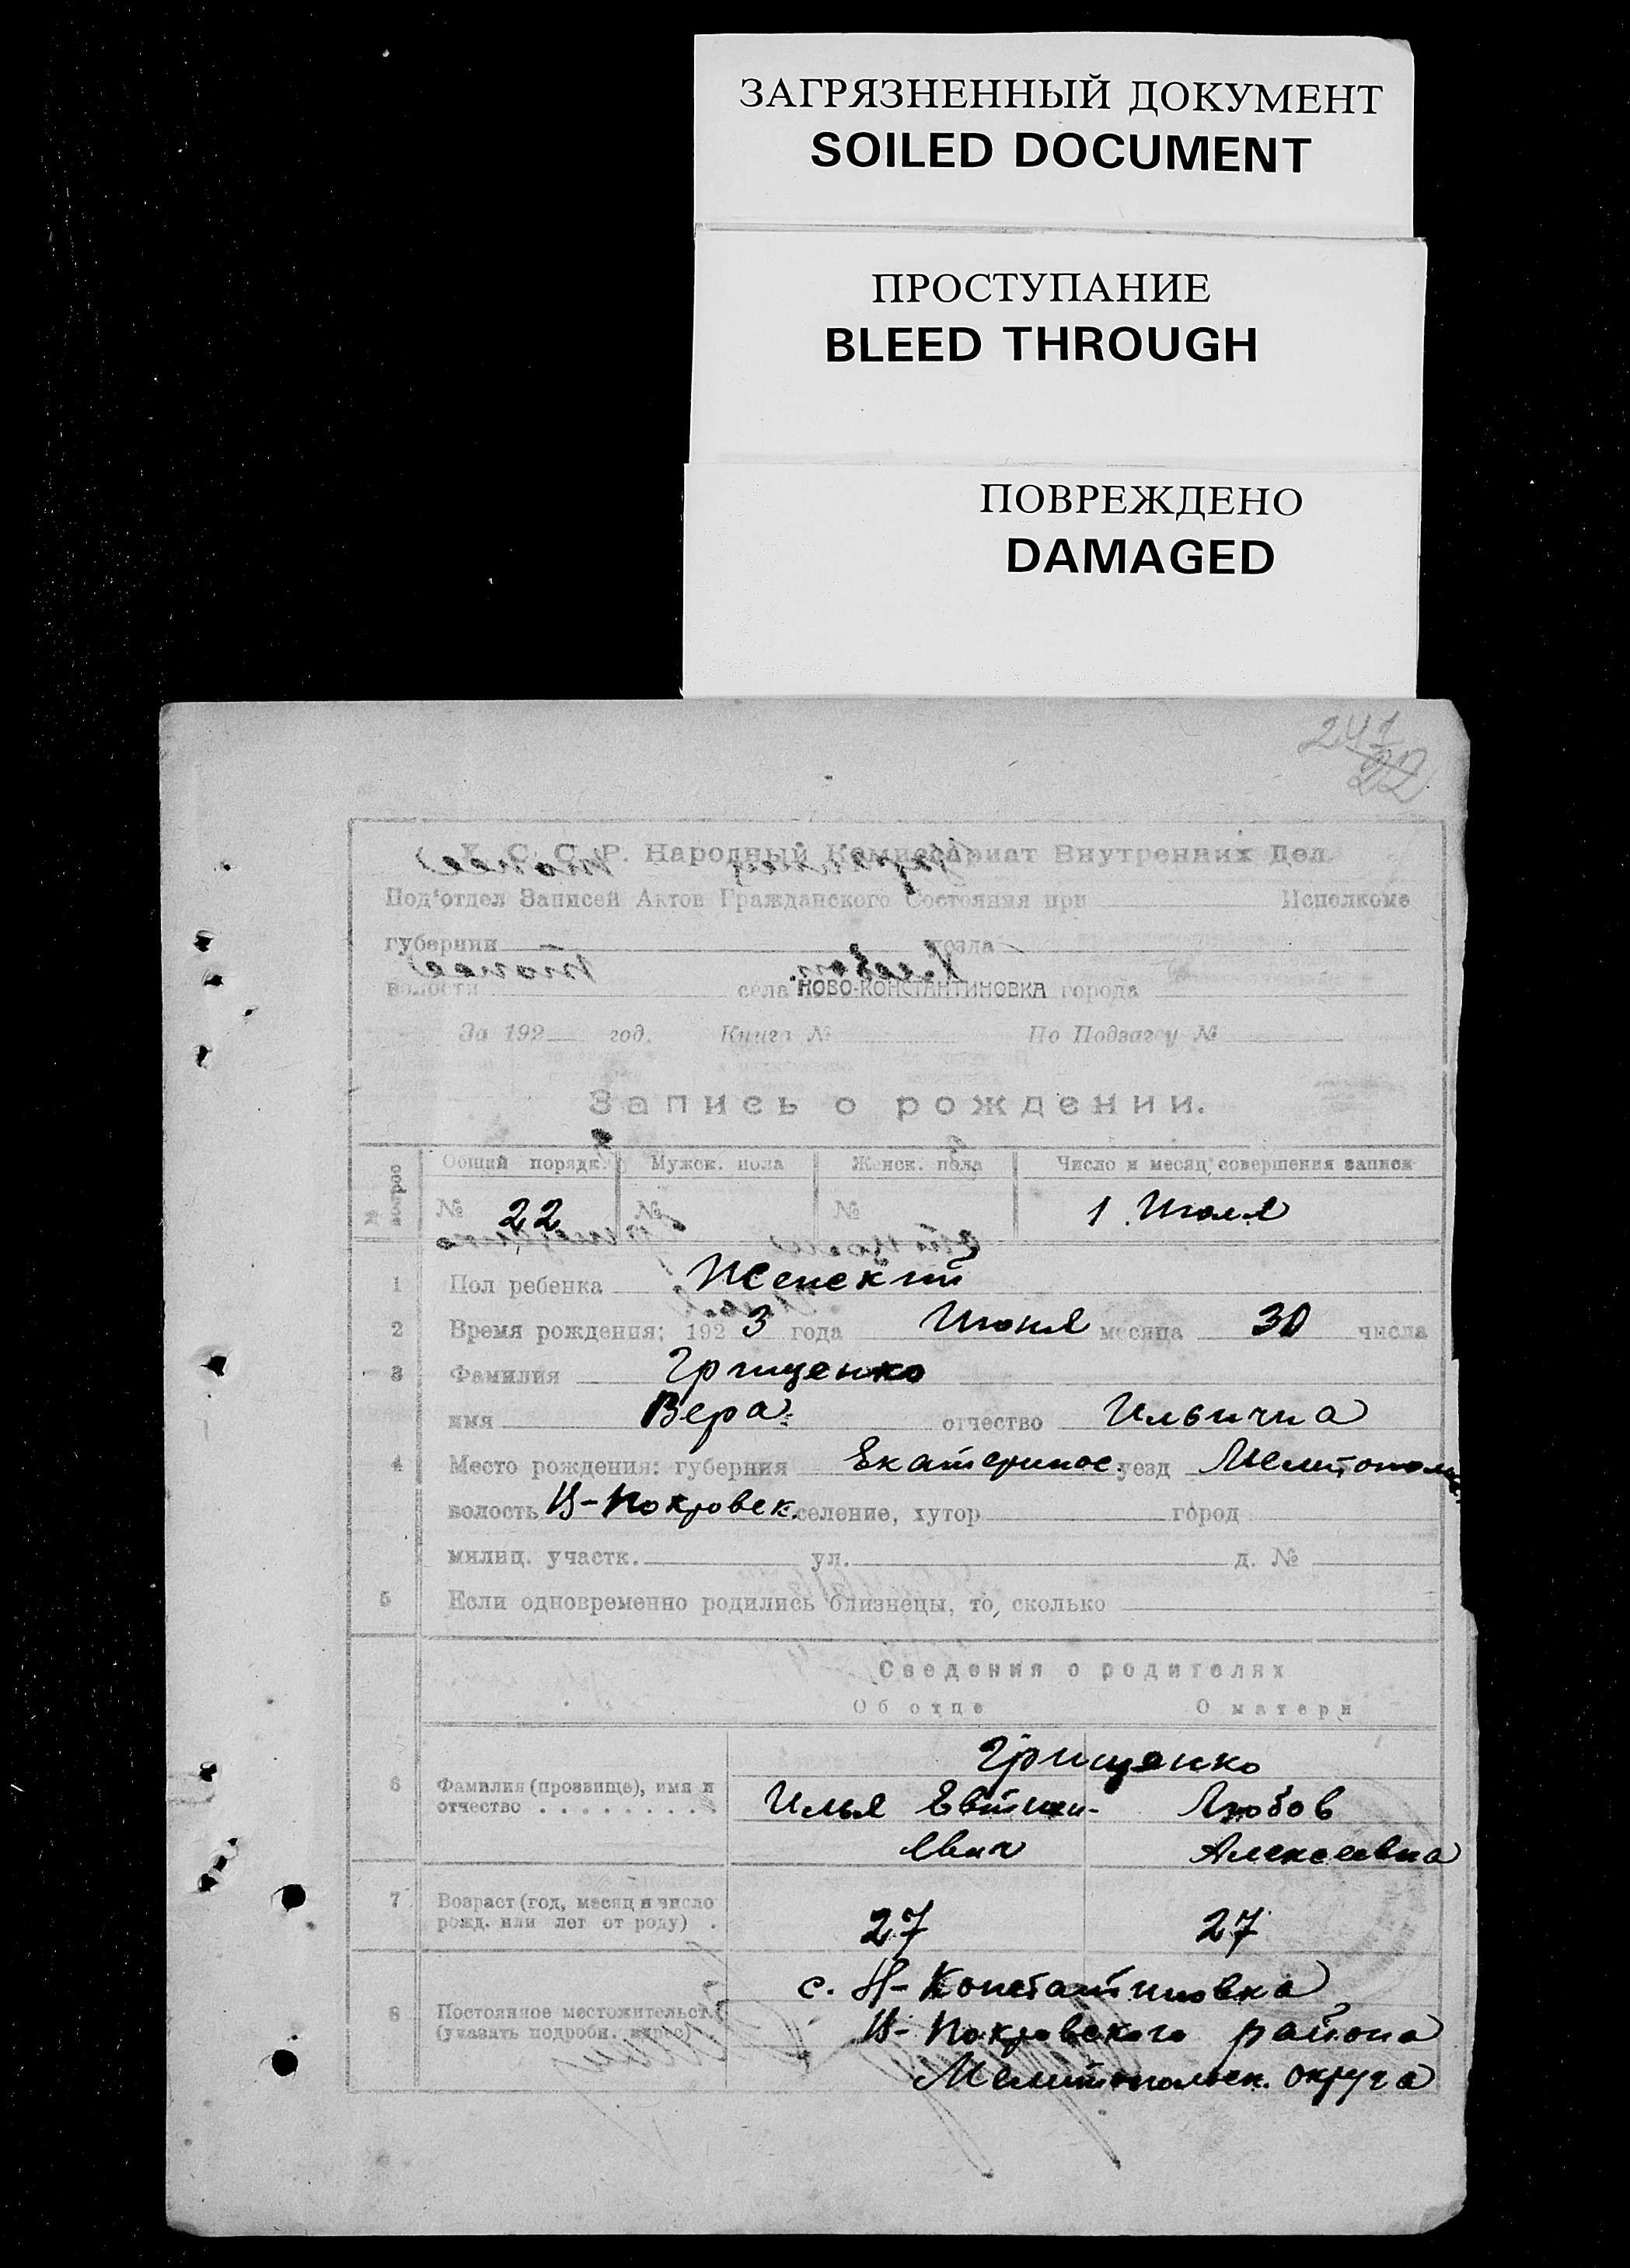 ЗАГРЯЗНЕННЫЙ ДОКУМЕНТ
SOILED DOCUMENT
ПРОСТУПАНИЕ
BLEED THROUGH
ПОВРЕЖДЕНО
DAMAGED
241
22
У. С. С. Р. Народный Комиссариат Внутренних Дел.
Под'отдел Записей Актов Гражданского Состояния при Исполкоме
губернии уезда
волости села НОВО-КОНСТАНТИНОВКА города
За 192 год. Книга № По Подзагсу №
Запись о рождении.
Общий порядк. Мужск. пола Женск. пола Число и месяц совершения записи
№ 22 № № 1 Июля
1 Пол ребенка Женский
2 Время рождения: 192 3 года Июня месяца 30 числа
3 Фамилия Грищенко
имя Вера отчество Ильична
4 Место рождения: губерния Екатеринос. уезд Мелитопольск.
волость Н-Покровск. селение, хутор город
милиц. участк. ул. д. №
5 Если одновременно родились близнецы, то сколько
Сведения о родителях
Об отце О матери
Грищенко
6 Фамилия (прозвище), имя и
отчество . . . . . . . . .
Илья Евтихи- Любов
евич Алексеевна
7 Возраст (год, месяц и число
рожд. или лет от роду) .
27 27
с. Н-Константиновка
8 Постоянное местожительст.
(указать подробн. адрес)
Н-Покровского района
Мелитопольск. округа